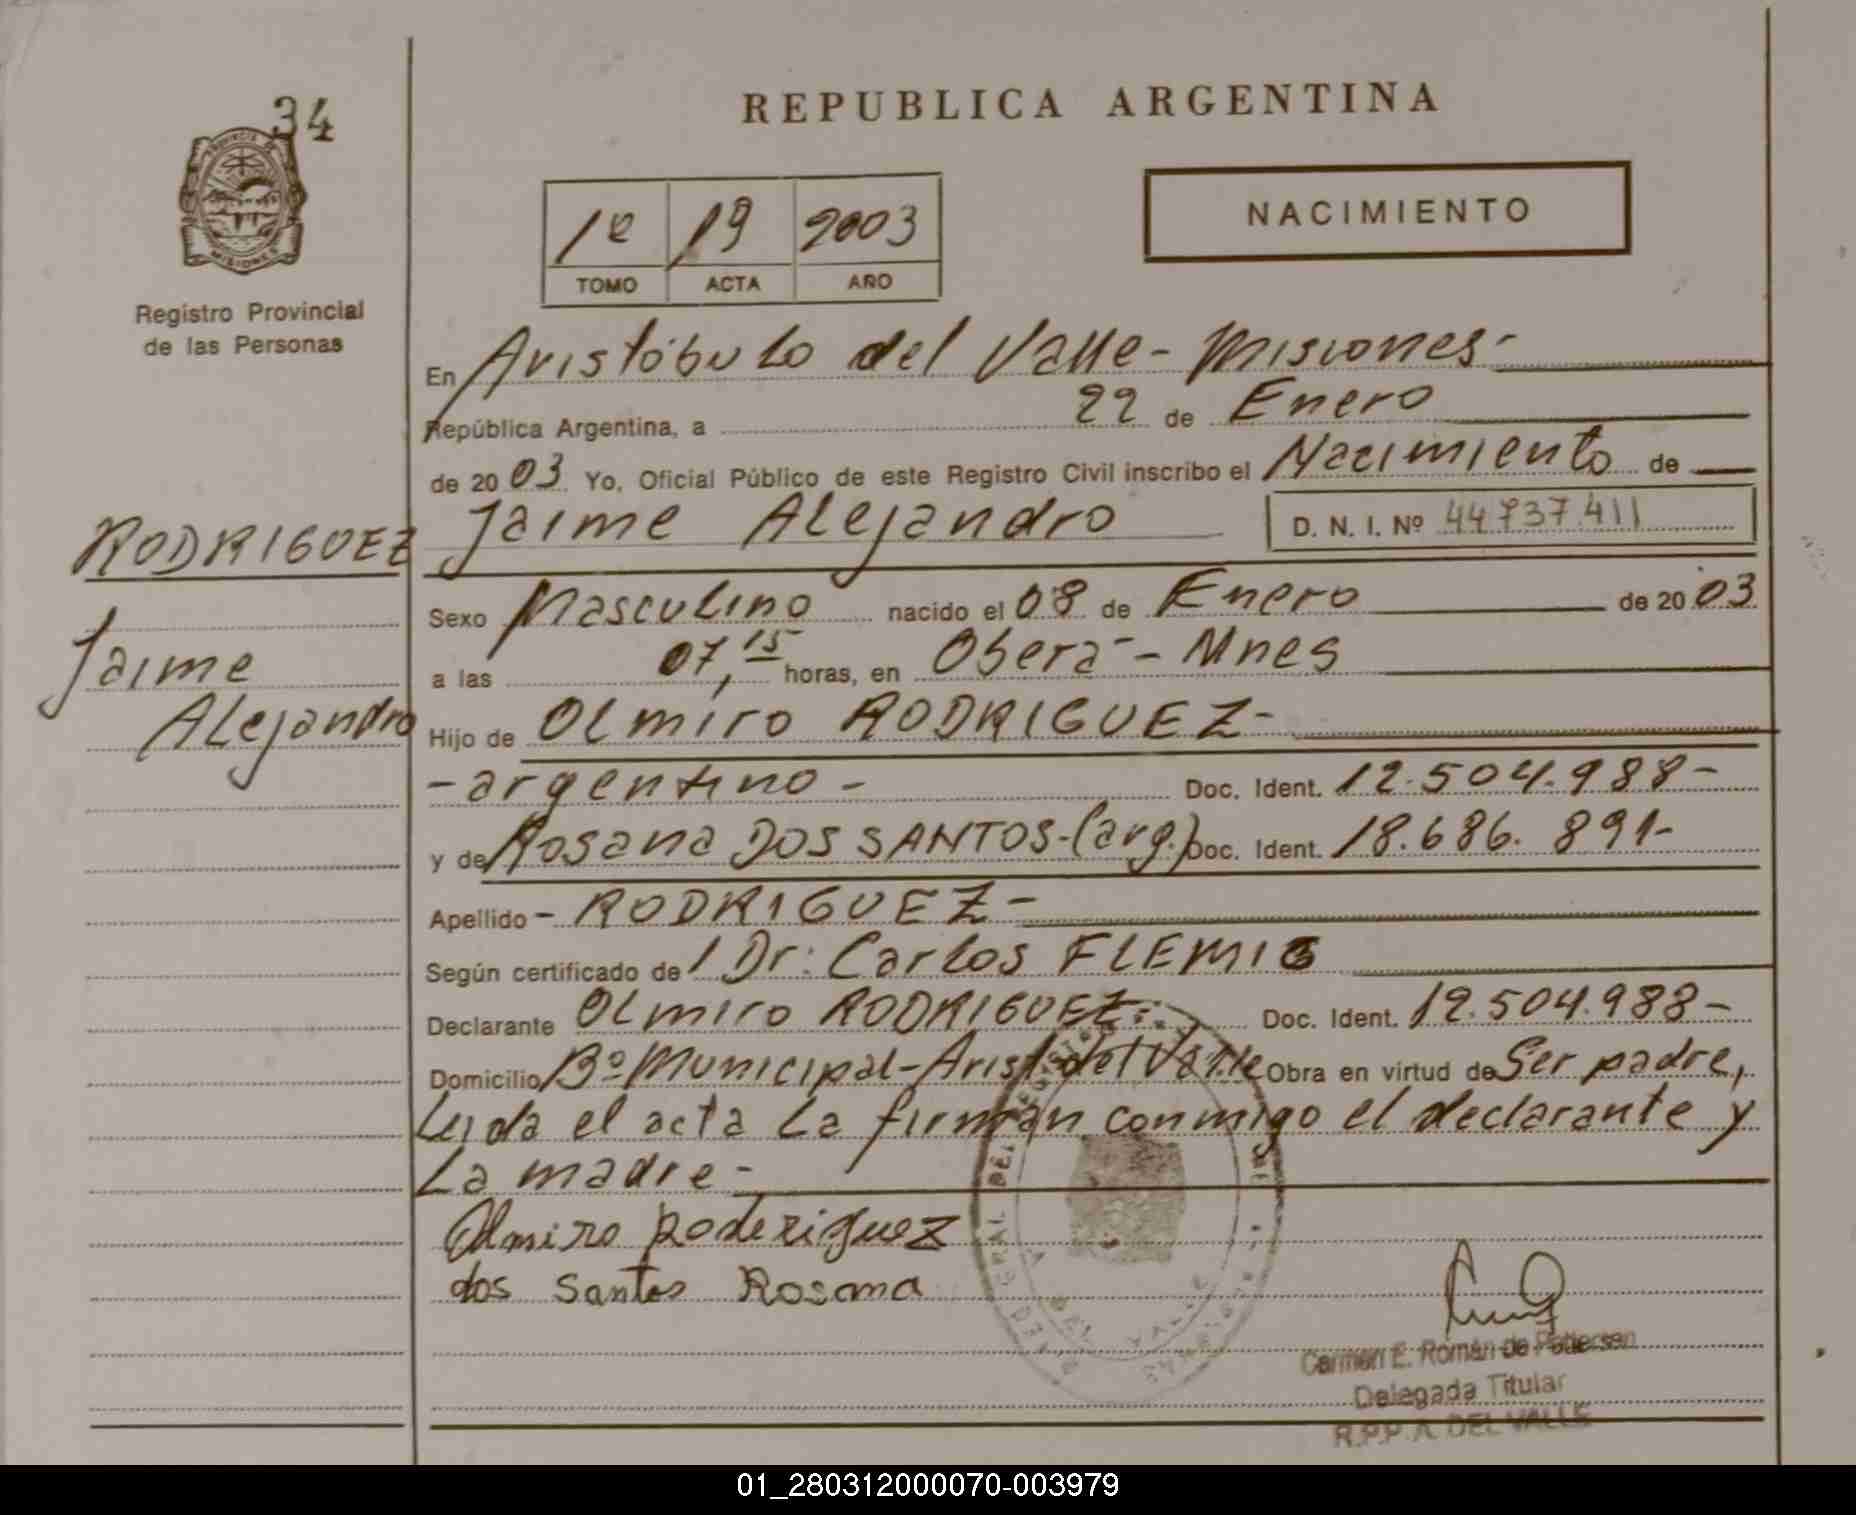 34
PROVINCIA DE
MISIONES
Registro Provincial
de las Personas
REPUBLICA ARGENTINA
1º 19 2003
TOMO ACTA AÑO
NACIMIENTO
En Aristóbulo del Valle - Misiones -
República Argentina, a 22 de Enero
de 2003 Yo, Oficial Público de este Registro Civil inscribo el Nacimiento de
RODRIGUEZ
Jaime
Alejandro
Jaime Alejandro D. N. I. Nº 44737411
Sexo Masculino nacido el 08 de Enero de 2003
a las 07,15 horas, en Oberá - Mnes
Hijo de OLmiro RODRIGUEZ -
- argentino - Doc. Ident. 12.504.988 -
y de Rosana DOS SANTOS - (arg.) Doc. Ident. 18.686.891 -
Apellido - RODRIGUEZ -
Según certificado de Dr: Carlos FLEMIG
Declarante OLmiro RODRIGUEZ - Doc. Ident. 12.504.988 -
Domicilio Bº Municipal - Arist. del Valle Obra en virtud de Ser padre,
Leida el acta La firman conmigo el declarante y
La madre -
Olmiro Roderiguez
dos Santos Rosana
Carmen E. Román de Pedersen
Delegada Titular
R.P.P. A. DEL VALLE
01_280312000070-003979